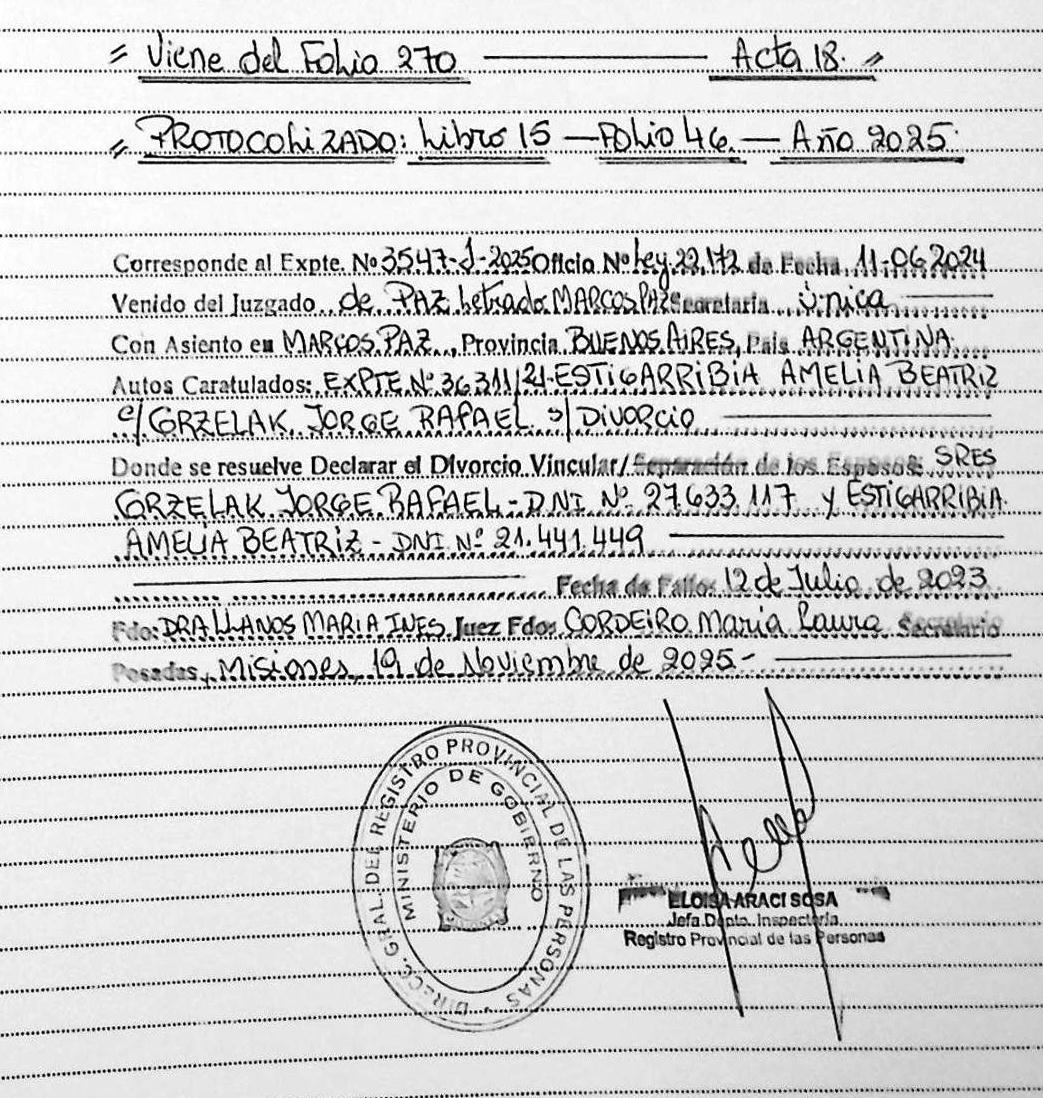 " Viene del Folio 270 ——— Acta 18. "
" PROTOCOLIZADO: Libro 15 — FOLIO 46. — Año 2025.
Corresponde al Expte. Nº 3547-J-2025 Oficio Nº Ley 22.172 de Fecha 11-06-2024
Venido del Juzgado de PAZ Letrado MARCOS PAZ Secretaria única
Con Asiento en MARCOS PAZ, Provincia BUENOS AIRES, Pais ARGENTINA
Autos Caratulados: EXPTE. Nº 36311/21-ESTIGARRIBIA AMELIA BEATRIZ
c/ GRZELAK JORGE RAFAEL s/ DIVORCIO
Donde se resuelve Declarar el Divorcio Vincular/ Separación de los Esposos: SRES
GRZELAK JORGE RAFAEL - DNI Nº 27.633.117 y ESTIGARRIBIA
AMELIA BEATRIZ - DNI Nº 21.441.449
Fecha de Fallo: 12 de Julio de 2023
Fdo: DRA LLANOS MARIA INES Juez Fdo: CORDEIRO María Laura Secretario
Posadas, Misiones, 19 de Noviembre de 2025-
DIRECC. GRAL. DEL REGISTRO PROVINCIAL DE LAS PERSONAS
MINISTERIO DE GOBIERNO
ELOISA ARACI SOSA
Jefa Dpto. Inspectoría
Registro Provincial de las Personas